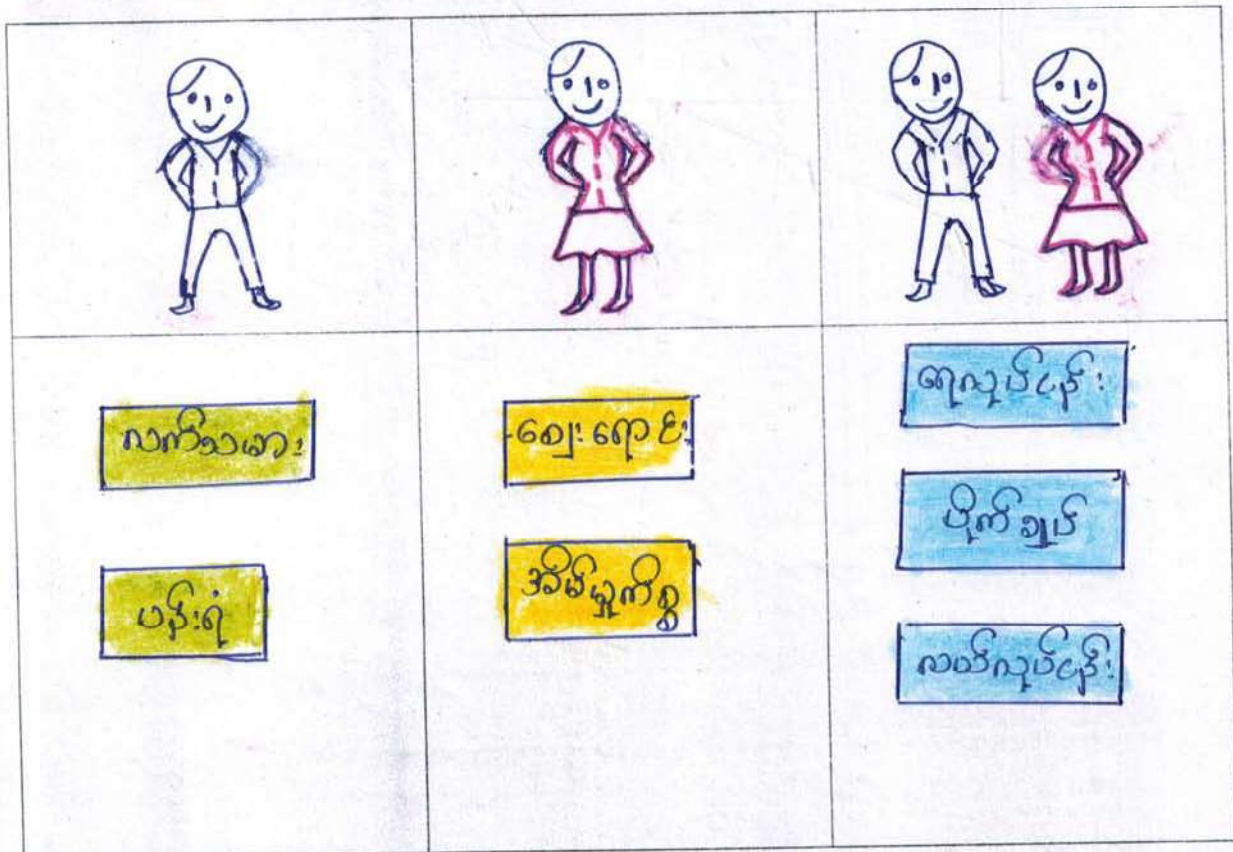 လက်သမား
ပန်းရံ
ဈေးရောင်း
အိမ်မှုကိစ္စ
ရေလုပ်ငန်း
စိုက်ချုပ်
လယ်လုပ်ငန်း